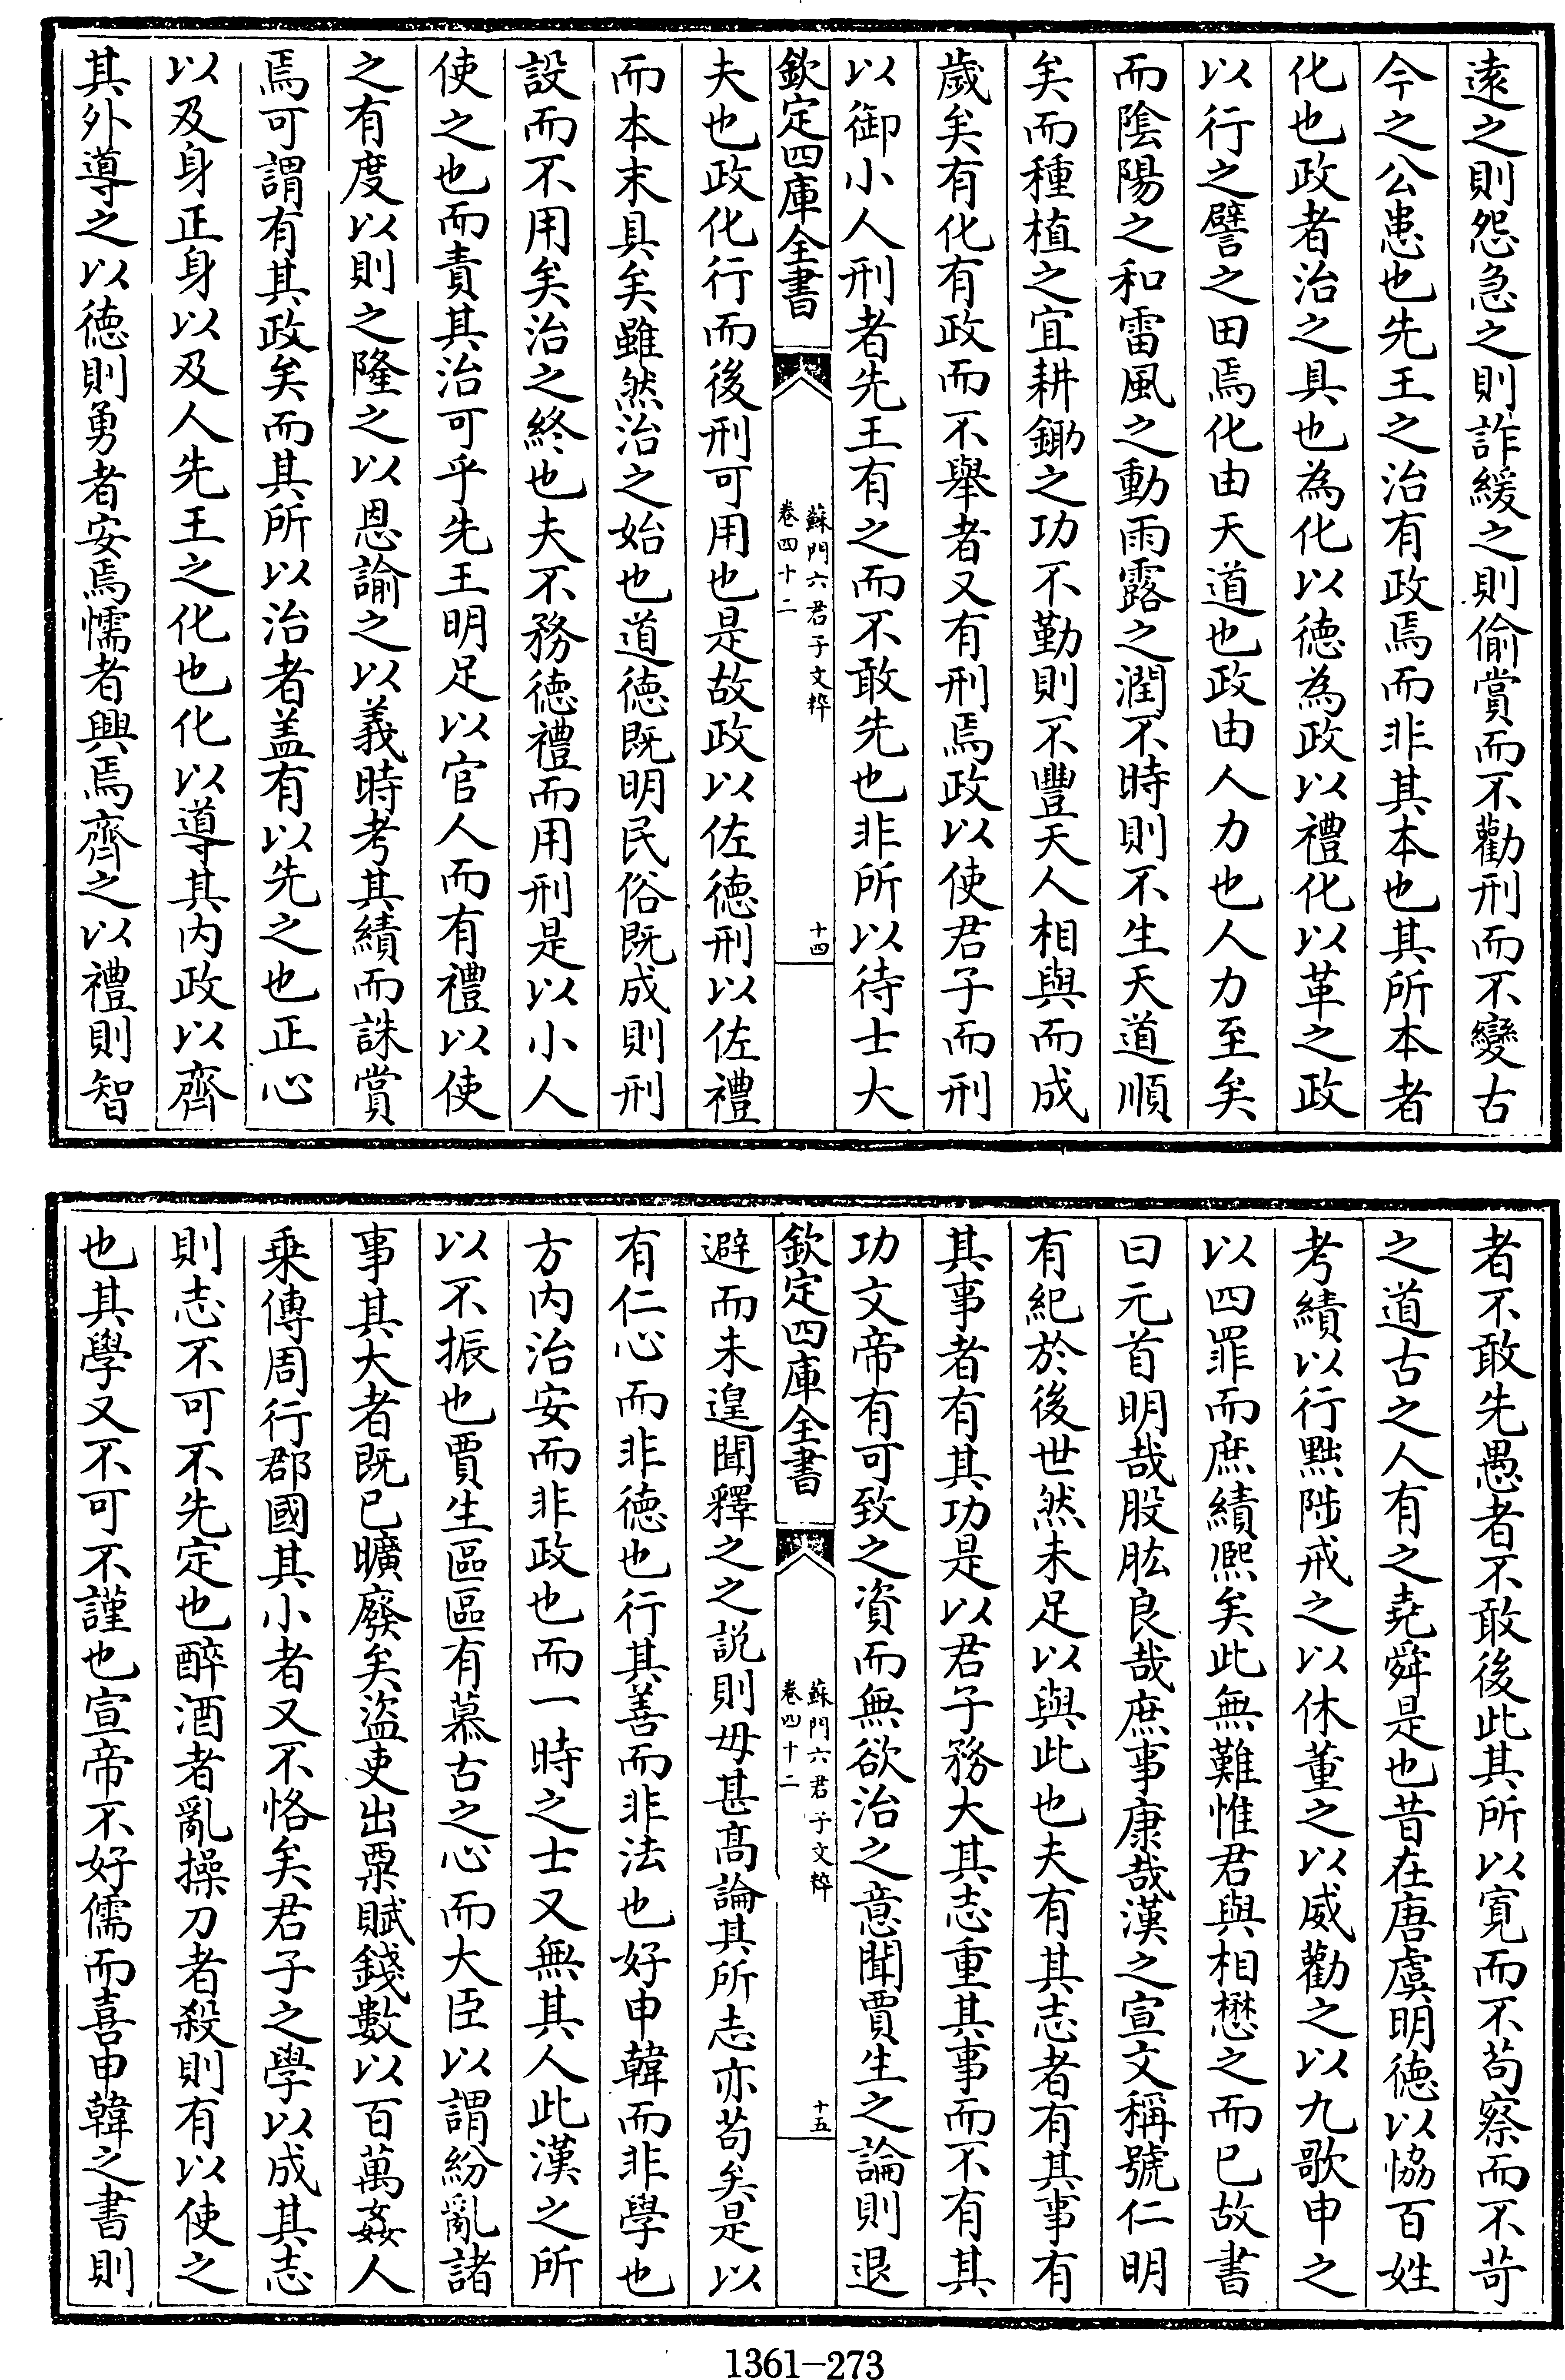 遠之則怨急之則詐緩之則偷賞而不勸刑而不變古
今之公患也先王之治有政焉而非其本也其所本者
化也政者治之具也為化以徳為政以禮化以革之政
以行之譬之田焉化由天道也政由人力也人力至矣
而隂陽之和雷風之動雨露之潤不時則不生天道順
矣而種植之宜耕鋤之功不勤則不豐天人相與而成
歲矣有化有政而不舉者又有刑焉政以使君子而刑
以御小人刑者先王有之而不敢先也非所以待士大
欽定四庫全書
蘇門六君子文粹
卷四十二
十四
夫也政化行而後刑可用也是故政以佐徳刑以佐禮
而本末具矣雖然治之始也道徳既明民俗既成則刑
設而不用矣治之終也夫不務徳禮而用刑是以小人
使之也而責其治可乎先王明足以官人而有禮以使
之有度以則之隆之以恩諭之以義時考其績而誅賞
焉可謂有其政矣而其所以治者盖有以先之也正心
以及身正身以及人先王之化也化以導其内政以齊
其外導之以徳則勇者安焉懦者興焉齊之以禮則智
者不敢先愚者不敢後此其所以寛而不苟察而不苛
之道古之人有之堯舜是也昔在唐虞明徳以恊百姓
考績以行黜陟戒之以休董之以威勸之以九歌申之
以四罪而庶績熈矣此無難惟君與相懋之而已故書
曰元首明哉股肱良哉庶事康哉漢之宣文稱號仁明
有紀於後世然未足以與此也夫有其志者有其事有
其事者有其功是以君子務大其志重其事而不有其
功文帝有可致之資而無欲治之意聞賈生之論則退
欽定四庫全書
蘇門六君子文粹
卷四十二
十五
避而未遑聞釋之之説則毋甚髙論其所志亦苟矣是以
有仁心而非徳也行其善而非法也好申韓而非學也
方内治安而非政也而一時之士又無其人此漢之所
以不振也賈生區區有慕古之心而大臣以謂紛亂諸
事其大者既已曠廢矣盜吏出粟賦錢數以百萬姦人
乗傳周行郡國其小者又不恪矣君子之學以成其志
則志不可不先定也醉酒者亂操刀者殺則有以使之
也其學又不可不謹也宣帝不好儒而喜申韓之書則
1361—273